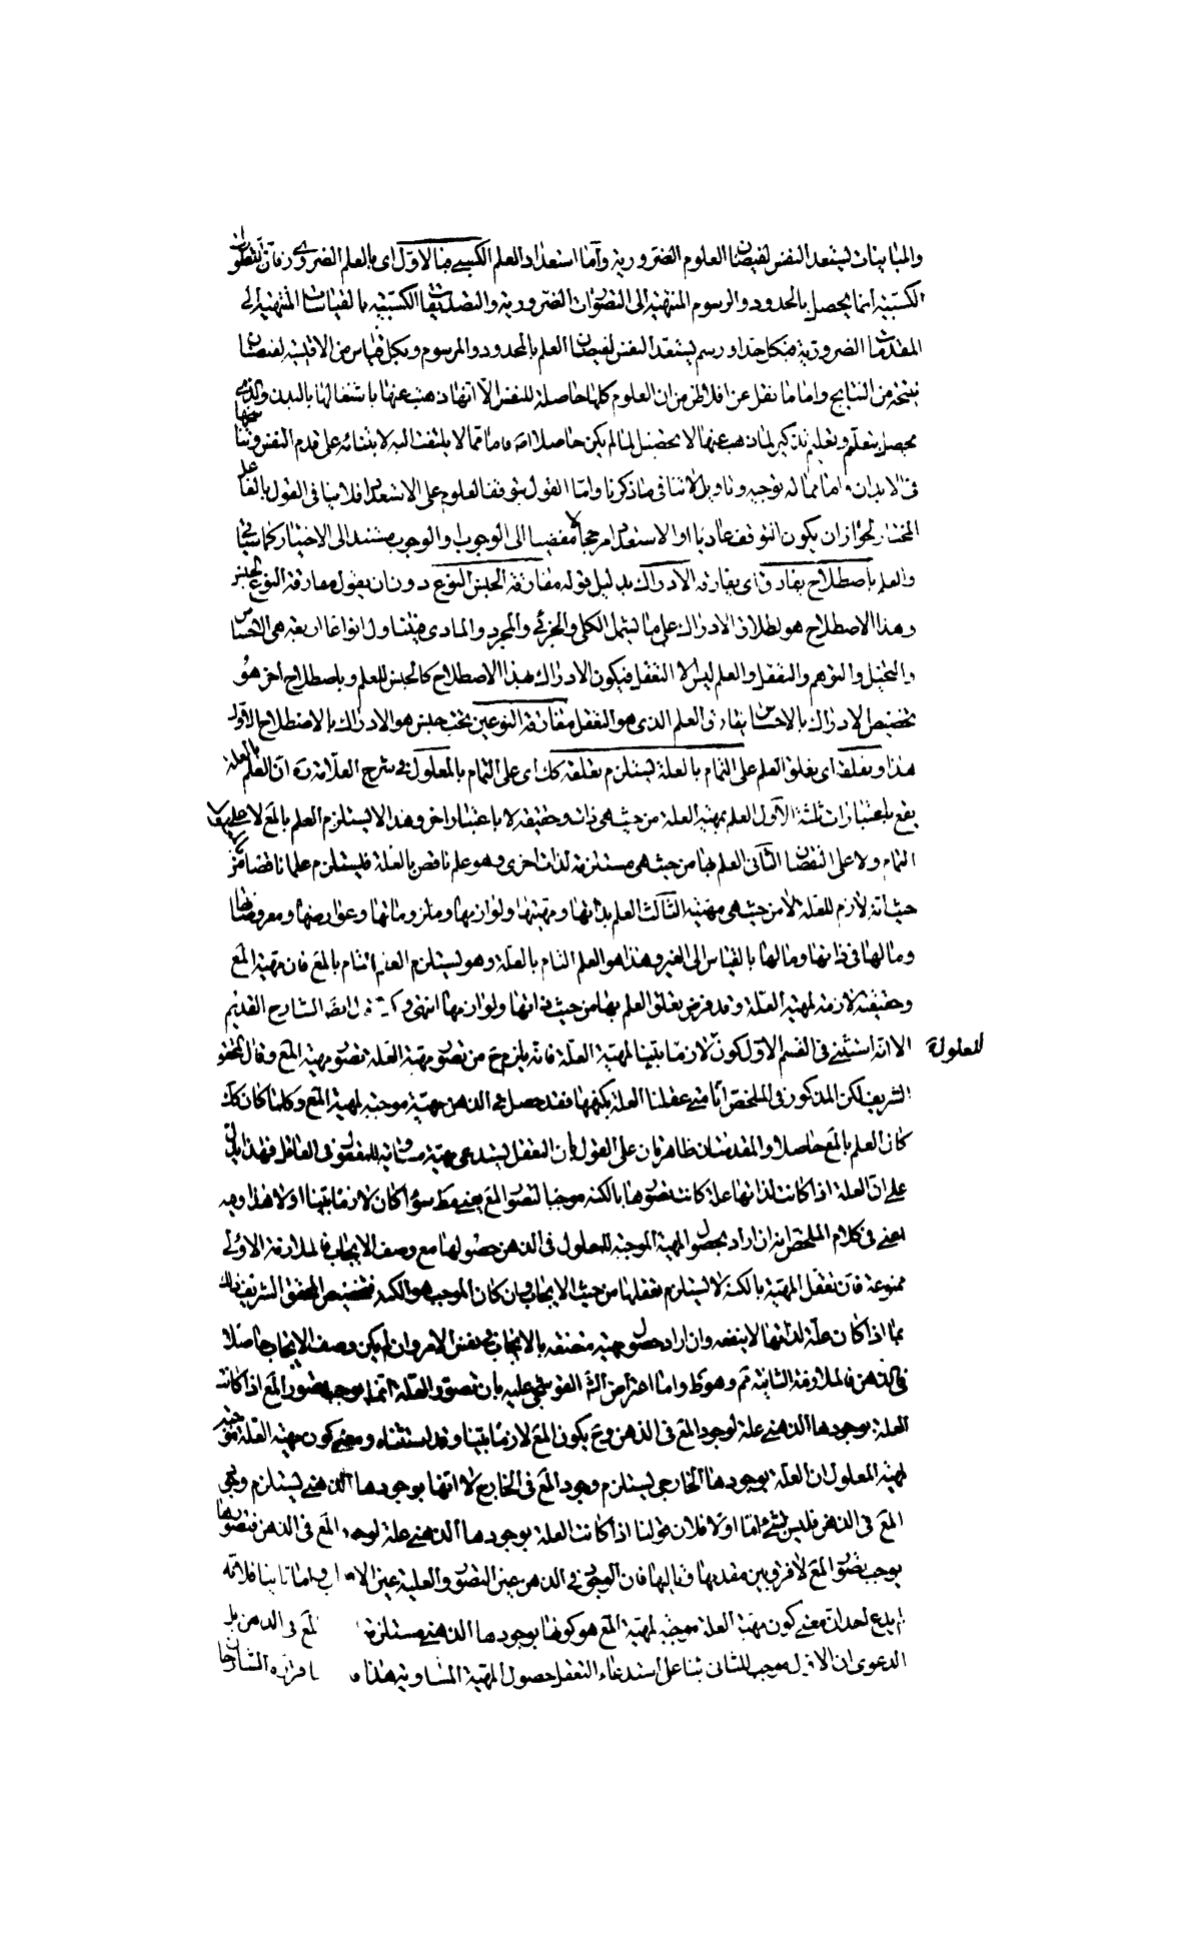 والمباينات ليستعد النفس لفيضان العلوم الضرورية وأما استعداد العلم الكسبي فبالاول اى بالعلم الضروري فان التصورات
الكسبية انما يحصل بالحدود والرسوم المنتهية الى التصورات الضرورية والتصديقات الكسبية بالقياسات المنتهية الى
المقدمات الضرورية فبكل حد او رسم ليستعد النفس لفيضان العلم بالمحدود والمرسوم وبكل قياس من الاقيسة لفيضان
نتيجة من النتايج واما ما نقل عن افلاطن من ان العلوم كلها حاصلة للنفس الا انها ذهبت عنها باشتغالها بالبدن والذى
يحصل بتعلم وتعليم تذكير لما ذهب عنها لا تحصيل لما لم يكن حاصلا له فاما مما لا يلتفت اليه لابتنائه على قدم النفس وتناسخها
فى الابدان واما مما له توجيه وتاويل لا ينافى ما ذكرنا واما القول بتوقف العلوم على الاستعداد فلا ينافى القول بالفاعل
المختار لجواز ان يكون التوقف عاديا او الاستعداد مرجحا لا مفضيا الى الوجوب او الوجوب مستند الى الاختيار كما سياتى
والعلم باصطلاح يفارق اى يفارقه الادراك بدليل قوله مفارقة الجنس النوع دون ان يقول مفارقة النوع الجنس
وهذا الاصطلاح هو اطلاق الادراك على ما يشمل الكلى والجزئى والمجرد والمادى فيتناول انواعا اربعة هى الاحساس
والتخيل والتوهم والتعقل والعلم ليس الا التعقل فيكون الادراك بهذا الاصطلاح كالجنس للعلم وباصطلاح اخر هو
تخصيص الادراك بالاحساس يفارق العلم الذى هو التعقل مفارقة النوعين تحت جنس هو الادراك بالاصطلاح الاول
هذا وتعلقه اى تعلق العلم على التمام بالعلة ليستلزم تعلقه كك اى على التمام بالمعلول فى شرح العلامة ره ان العلم بالعلة
يقع باعتبارات ثلثة الاول العلم بمهية العلة من حيث هى ذات وحقيقة لا باعتبار اخر وهذا لا يستلزم العلم بالمع لا على
التمام ولا على النقصان الثانى العلم بها من حيث هى مستلزمة لذات اخرى وهو علم ناقص بالعلة فليستلزم علما ناقصا بالمع من
حيث انه لازم للعلة لا من حيث هى مهيته الثالث العلم بذاتها ومهيتها ولوازمها وملزوماتها وعوارضها ومعروضاتها
وما لها فى ذاتها وما لها بالقياس الى الغير وهذا هو العلم التام بالعلة وهو ليستلزم العلم التام بالمع فان مهية المع
وحقيقته لازمة لمهية العلة وقد فرض تعلق العلم بها من حيث ذاتها ولوازمها انتهى الشارح القديم
الا انه استثنى فى القسم الاول كون المعلول لازما بينا لمهية العلة فانه يلزم ح من تصور مهية العلة تصور مهية المع وقال المحقق
الشريف لكن المذكور فى الملخص انا متى عقلنا العلة بكنهها فقد حصل فى الذهن مهية موجبة لمهية المع وكلما كان كك
كان العلم بالمع حاصلا والمقدمتان ظاهرتان على القول بان التعقل ليستدعى مهية مساوية للمعقول فى العاقل فهذا يدل
على ان العلة اذا كانت لذاتها علة كانت تصورها بالكنه موجبا لتصور المع يعنى مط سواء كان لازما بينا او لا هذا وجه
يعنى فى كلام الملخص انه ان اراد بحصول المهية الموجبة للمعلول فى الذهن حصولها مع وصف الايجاب فالملازمة الاولى
ممنوعة فان تعقل المهية بالكنه لا يستلزم تعقلها من حيث الايجاب وان كان الموجب هو الكنه فتخصيص المحقق الشريف ذلك
بما اذا كان علة لذاتها لا ينفعه وان اراد حصول مهية متصفة بالايجاب فى نفس الامر وان لم يكن وصف الايجاب حاصلا
فى الذهن فالملازمة الثانية مم وهو ظ واما اعتراض الش القوشجى عليه بان تصور العلة انما يوجب تصور المع اذا كانت
العلة بوجودها الذهنى علة لوجود المع فى الذهن وح يكون المع لازما بينا وقد استثناه ومعنى كون مهية العلة موجبة
لمهية المعلول ان العلة بوجودها الخارجى ليستلزم وجود المع فى الخارج لا انها بوجودها الذهنى ليستلزم وجود
المع فى الذهن فليس بشئ اما اولا فلان قولنا اذا كانت العلة بوجودها الذهنى علة لوجود المع فى الذهن فتصورها
يوجب تصور المع لا فرق بين مقدمها وتاليها فان الوجود فى الذهن عين التصور والعلية عين الايجاب واما ثانيا فلانه
لم يدع احد ان معنى كون مهية العلة موجبة لمهية المع هو كونها بوجودها الذهنى مستلزمة المع فى الذهن بل
الدعوى ان الاول موجب للثانى بناء على استدعاء التعقل حصول المهية المساوية هذا ما قرره الشارحان